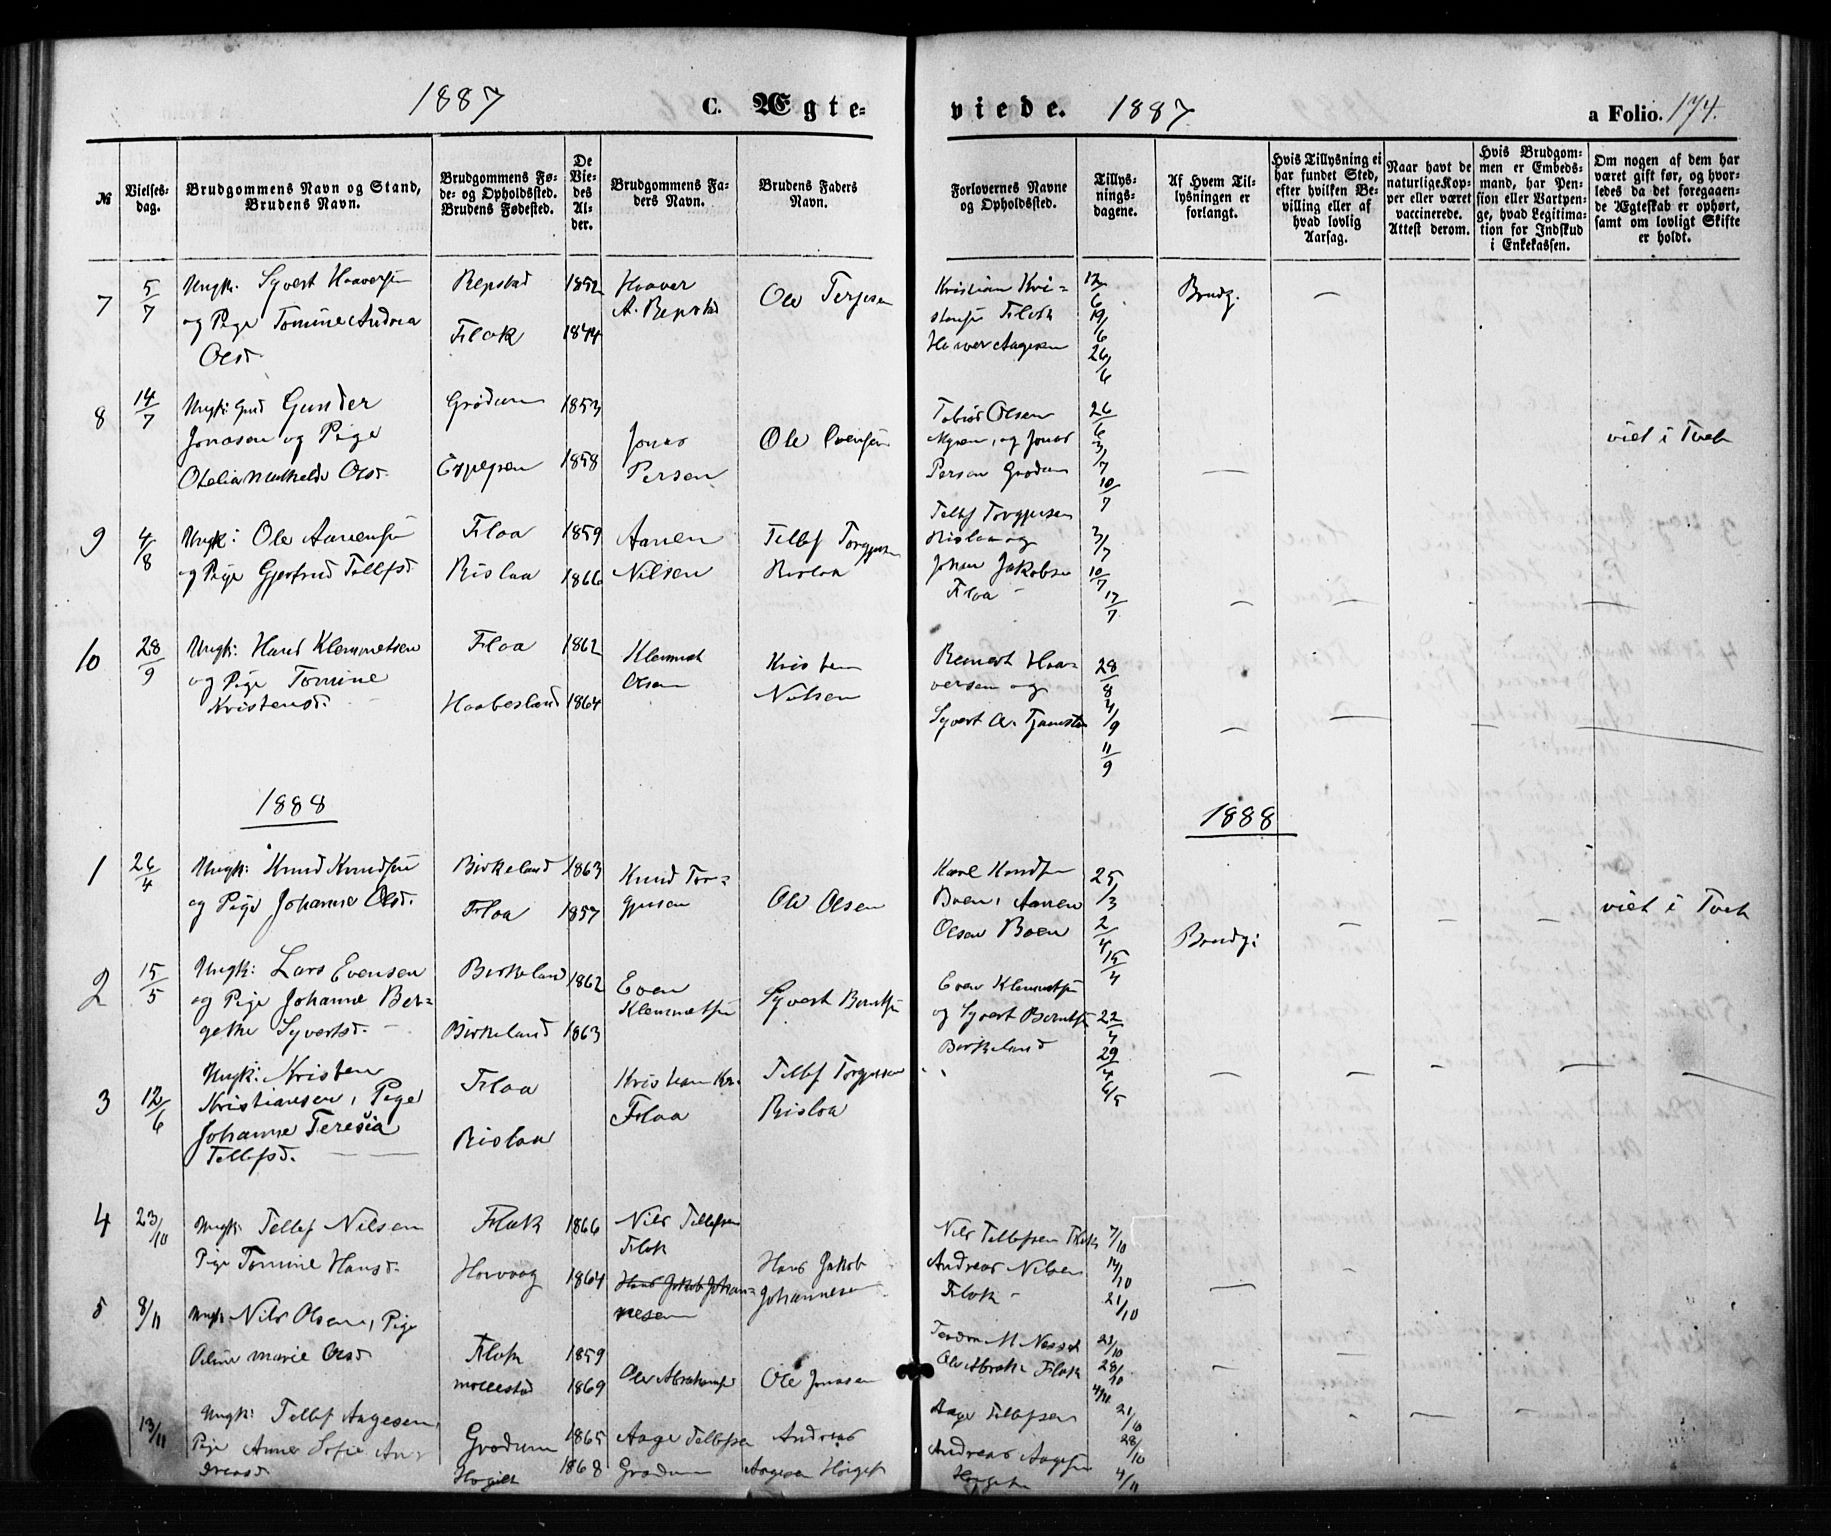 1887 C. Ægte-
viede. 1887 a Folio. 174.
№
Vielses-
dag.
Brudgommens Navn og Stand,
Brudens Navn.
Brudgommens Fø-
de- og Opholdssted.
Brudens Fødested.
De
Vie-
des
Al-
der.
Brudgommens Fa-
ders Navn.
Brudens Faders
Navn.
Forlovernes Navne
og Opholdssted.
Tillys-
nings-
dagene.
Af Hvem Til-
lysningen er
forlangt.
Hvis Tillysning ei
har fundet Sted,
efter hvilken Be-
villing eller af
hvad lovlig
Aarsag.
Naar havt de
naturlige Kop-
per eller været
vaccinerede.
Attest derom.
Hvis Brudgom-
men er Embeds-
mand, har Pen-
sion eller Vartpen-
ge, hvad Legitima-
tion for Indskud
i Enkekassen.
Om nogen af dem har
været gift før, og hvor-
ledes da det foregaaen-
de Ægteskab er ophørt,
samt om lovligt Skifte
er holdt.
7 5/7 Ungk: Syvert Haaversen
og Pige Tomine Andrea
Olsd.
Repstad 1852
Flak 1844
Haaver
A. Repstad
Ole Terjesen
Kristian Kri-
stensen Flak
Haaver Aagesen
13/6
19/6
26/6
Brudg.
8 14/7 Ungk: Gmd Gunder
Jonasen og Pige
Otelia Mathilde Olsd.
Grødum 1853
Eppepen 1858
Jonas
Persen
Ole Evensen
Tobias Olsen
Myren, og Jonas
Persen Grødum
26/6
3/7
10/7
viet i Tveit
9 4/8 Ungk: Ole Aanensen
og Pige Gjertrud Tellefsd.
Flaa 1859
Rislaa 1866
Aanen
Nilsen
Tellef Torgjusen
Rislaa
Tellef Torgjusen
Rislaa og
Johan Jakobsen
Flaa
3/7
10/7
17/7
10 28/9 Ungk: Hans Klemmetsen
og Pige Tomine
Kristensd.
Flaa 1862
Haabesland 1864
Klemmet
Olsen
Kristen
Nilsen
Reinert Haa-
versen og
Syvert A. Tjamsten
28/8
4/9
11/9
1888
1888
1 26/4 Ungk: Knud Knudsen
og Pige Johanne Olsd.
Birkeland 1863
Flaa 1857
Knud Tor-
gjusen
Ole Olsen
Karl Knudsen
Boen, Aanen
Olsen Boen
25/3
2/4
15/4
Brudg:
viet i Tveit
2 15/5 Ungk: Lars Evensen
og Pige Johanne Ber-
gette Syvertsd.
Birkeland 1862
Birkeland 1863
Even
Klemmetsen
Syvert Berntsen
Even Klemmetsen
og Syvert Berntsen
Birkeland
22/4
29/4
6/5
3 12/6 Ungk: Kristen
Kristiansen, Pige
Johanne Teresia
Tellefsd.
Flaa
Rislaa
Kristian Kr.
Flaa
Tellef Torgjusen
Rislaa
4 23/10 Ungk: Tellef Nilsen
Pige Tomine Hansd.
Flak 1866
Høvaag 1864
Nils Tellefsen
Flak
Hans Jakob Johan-
nesen
Hans Jakob
Johannesen
Nils Tellefsen Flak
Andreas Nilsen
Flak
7/10
14/10
21/10
5 8/11 Ungk: Nils Olsen, Pige
Oline Marie Olsd
Flak 1859
Mollestad 1869
Ole Abrahamsen
Ole Jonasen
M Nesset
Ole Abrah. Flak
21/10
28/10
4/11
13/11 Ungk: Tellef Aagesen,
Pige Anne Sofie An-
dreasd
Grødum 1865
1868
Aage Tellefsen
Grødum
Andreas
Aagesen
Aage Tellefsen
Andreas Aagesen
21/10
28/10
4/11